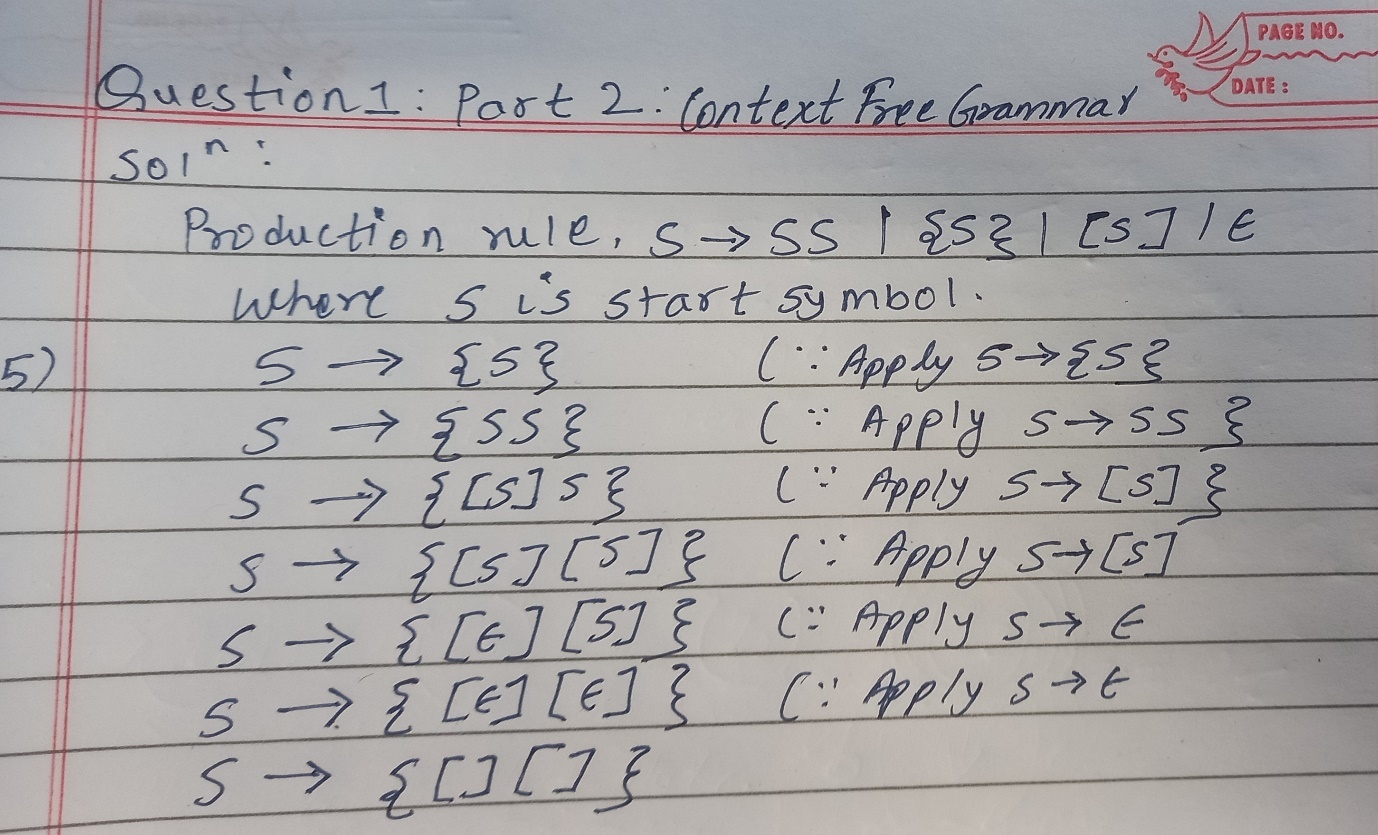 PAGE NO.
DATE :
Question 1 : Part 2 : Context Free Grammar
Solⁿ :
Production rule, S → SS | {S} | [S] | ε
Where S is start symbol.
5) S → {S} (∵ Apply S → {S}
S → {SS} (∵ Apply S → SS }
S → {[S]S} (∵ Apply S → [S] }
S → {[S][S]} (∵ Apply S → [S]
S → {[ε][S]} (∵ Apply S → ε
S → {[ε][ε]} (∵ Apply S → ε
S → {[][]}